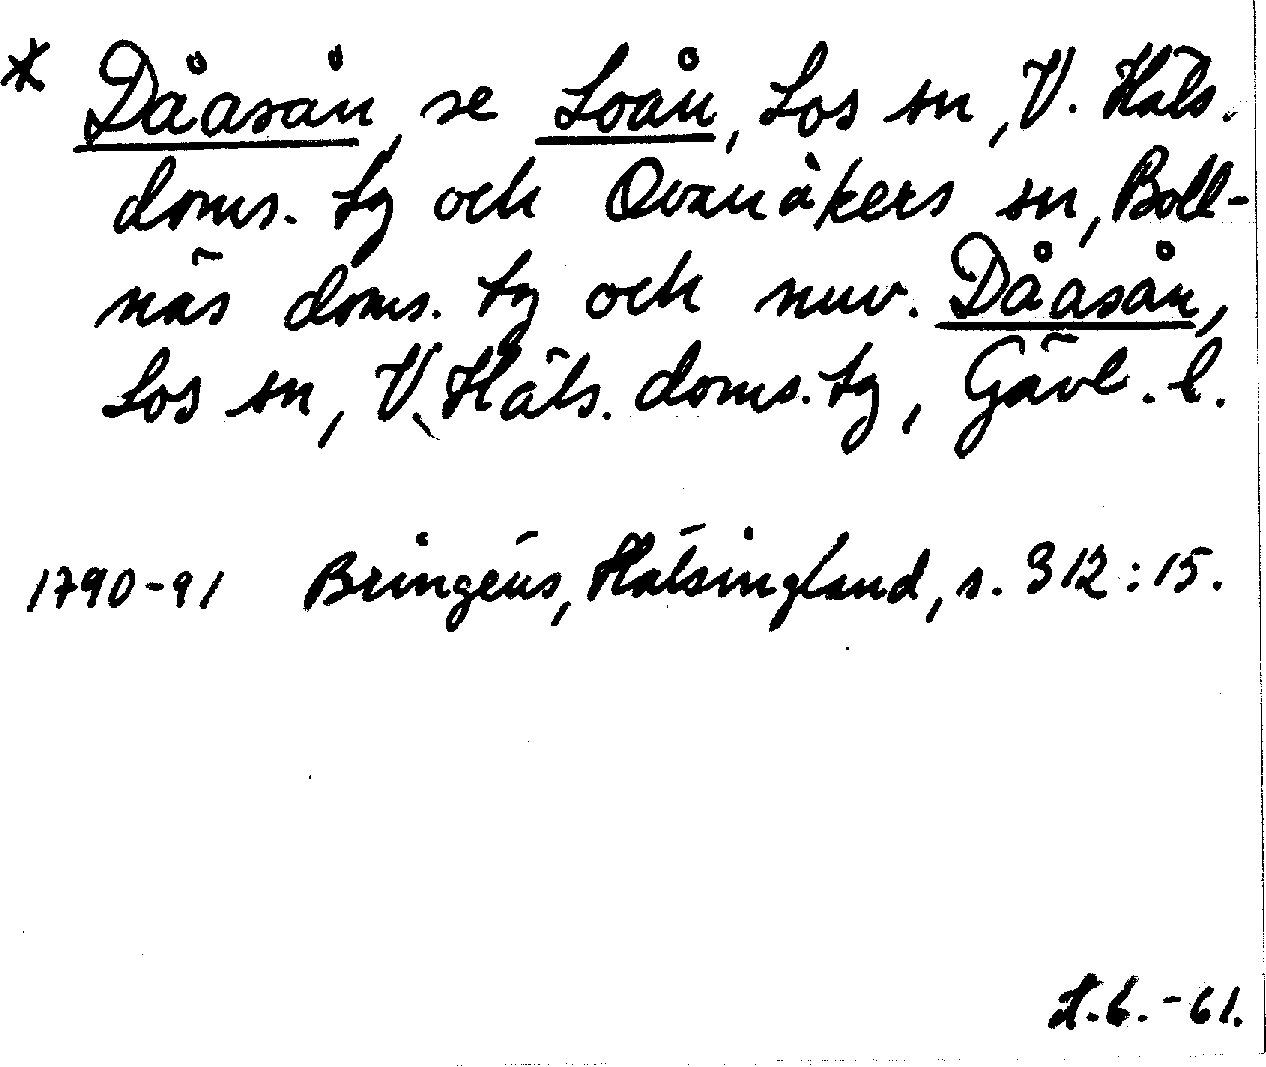 * Dåasån, se Loån, Los sn, V. Häls.
doms. tg och Ovanåkers sn, Boll-
näs doms. tg och nuv. Dåasån,
Los sn, V. Häls. doms. tg, Gävl. l.
1790-91 Bringéus, Hälsingland, s. 312:15.
-61.